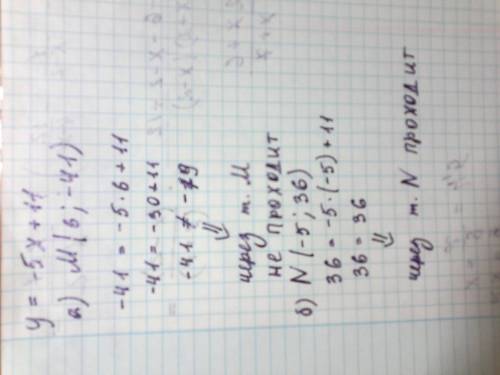 y = -5x+11
а) М(6; -41)
-41 = -5·6+11
-41 = -30+11
-41 ≠ -19
⇓
через т. М
не проходит
б) N(-5; 36)
36 = -5·(-5)+11
36 = 36
⇓
через т. N проходит